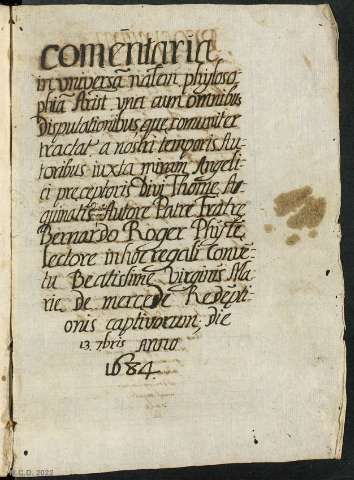 Comentaria
in universā nalem phyloso-
phiā Arist. una cum omnibus
disputationibus que comuniter
tractāt a nostri temporis Au-
toribus iuxta miram Angeli-
ci preceptoris Divi Thome A-
quinatis Autore Patre Fratre
Bernardo Roger Phyłe
Lectore in hoc regali Convē-
tu Beatissime Virginis Ma-
rie de mercede Redēpti-
onis captivorum; die
13. 7bris Anno
1684.
R.C.D. 2022